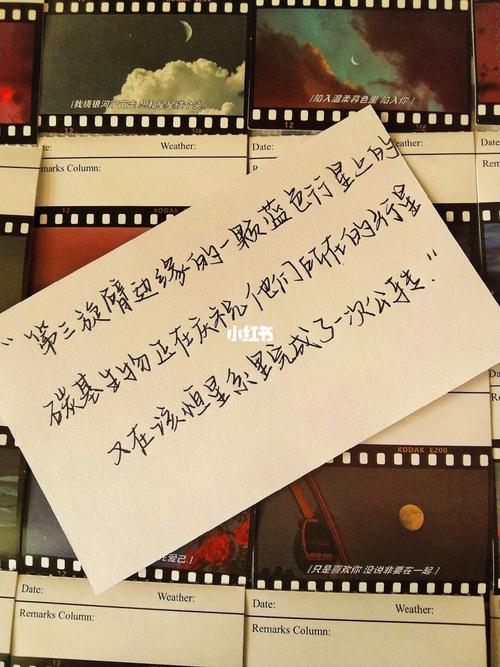 [我绕银河
陷入温柔暮色里 陷入你]
12
12A
12
Date:
Weather:
Remarks Column:
Date:
Weather:
Remarks Column:
KODAK
"第三旋臂边缘的一颗蓝色行星上的
碳基生物正在庆祝他们所在的行星
又在该恒星系里完成了一次公转."
小红书
KODAK E200
爱己]
[只是喜欢你 没说非要在一起]
12
Date:
Weather:
Remarks Column:
Date:
Weather:
Remarks Column: